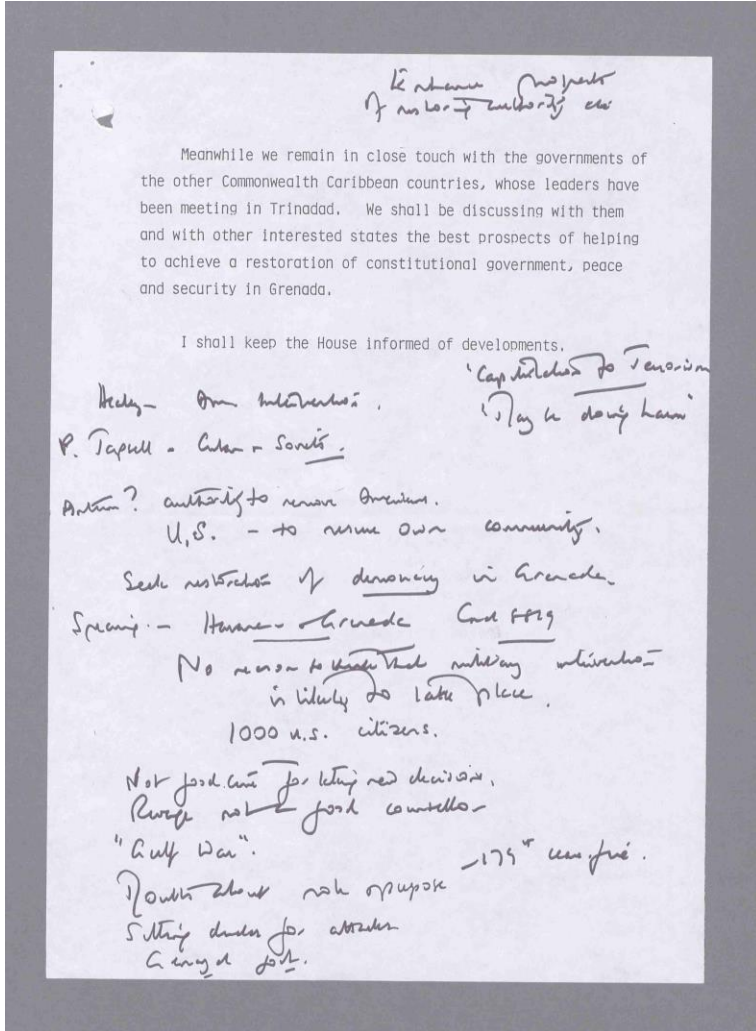 of restoring authority
Meanwhile we remain in close touch with the governments of
the other Commonwealth Caribbean countries, whose leaders have
been meeting in Trinadad. We shall be discussing with them
and with other interested states the best prospects of helping
to achieve a restoration of constitutional government, peace
and security in Grenada.
I shall keep the House informed of developments.
'Capitulation to Terrorism
Healey - intervention.
'May be doing harm'
P. Tapsell - Cuban + Soviets.
authority to remove
U.S. - to rescue own community.
Seek restoration of democracy in Grenada.
Grenada
No reason to think that military intervention
is likely to take place.
1000 U.S. citizens.
Not good time for taking new decisions.
Revenge not a good counsellor
"Gulf War".
Doubts about role + purpose - 179th cease-fire.
Sitting ducks for attacks